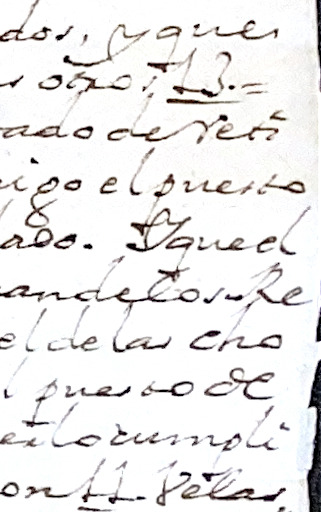 dos, y que
s otros 13.=
ado de reti
igo el puesto
lado. Y que el
andelos. Re
el de las cho
l puesto de
esto cumpli
on 11. Velas,